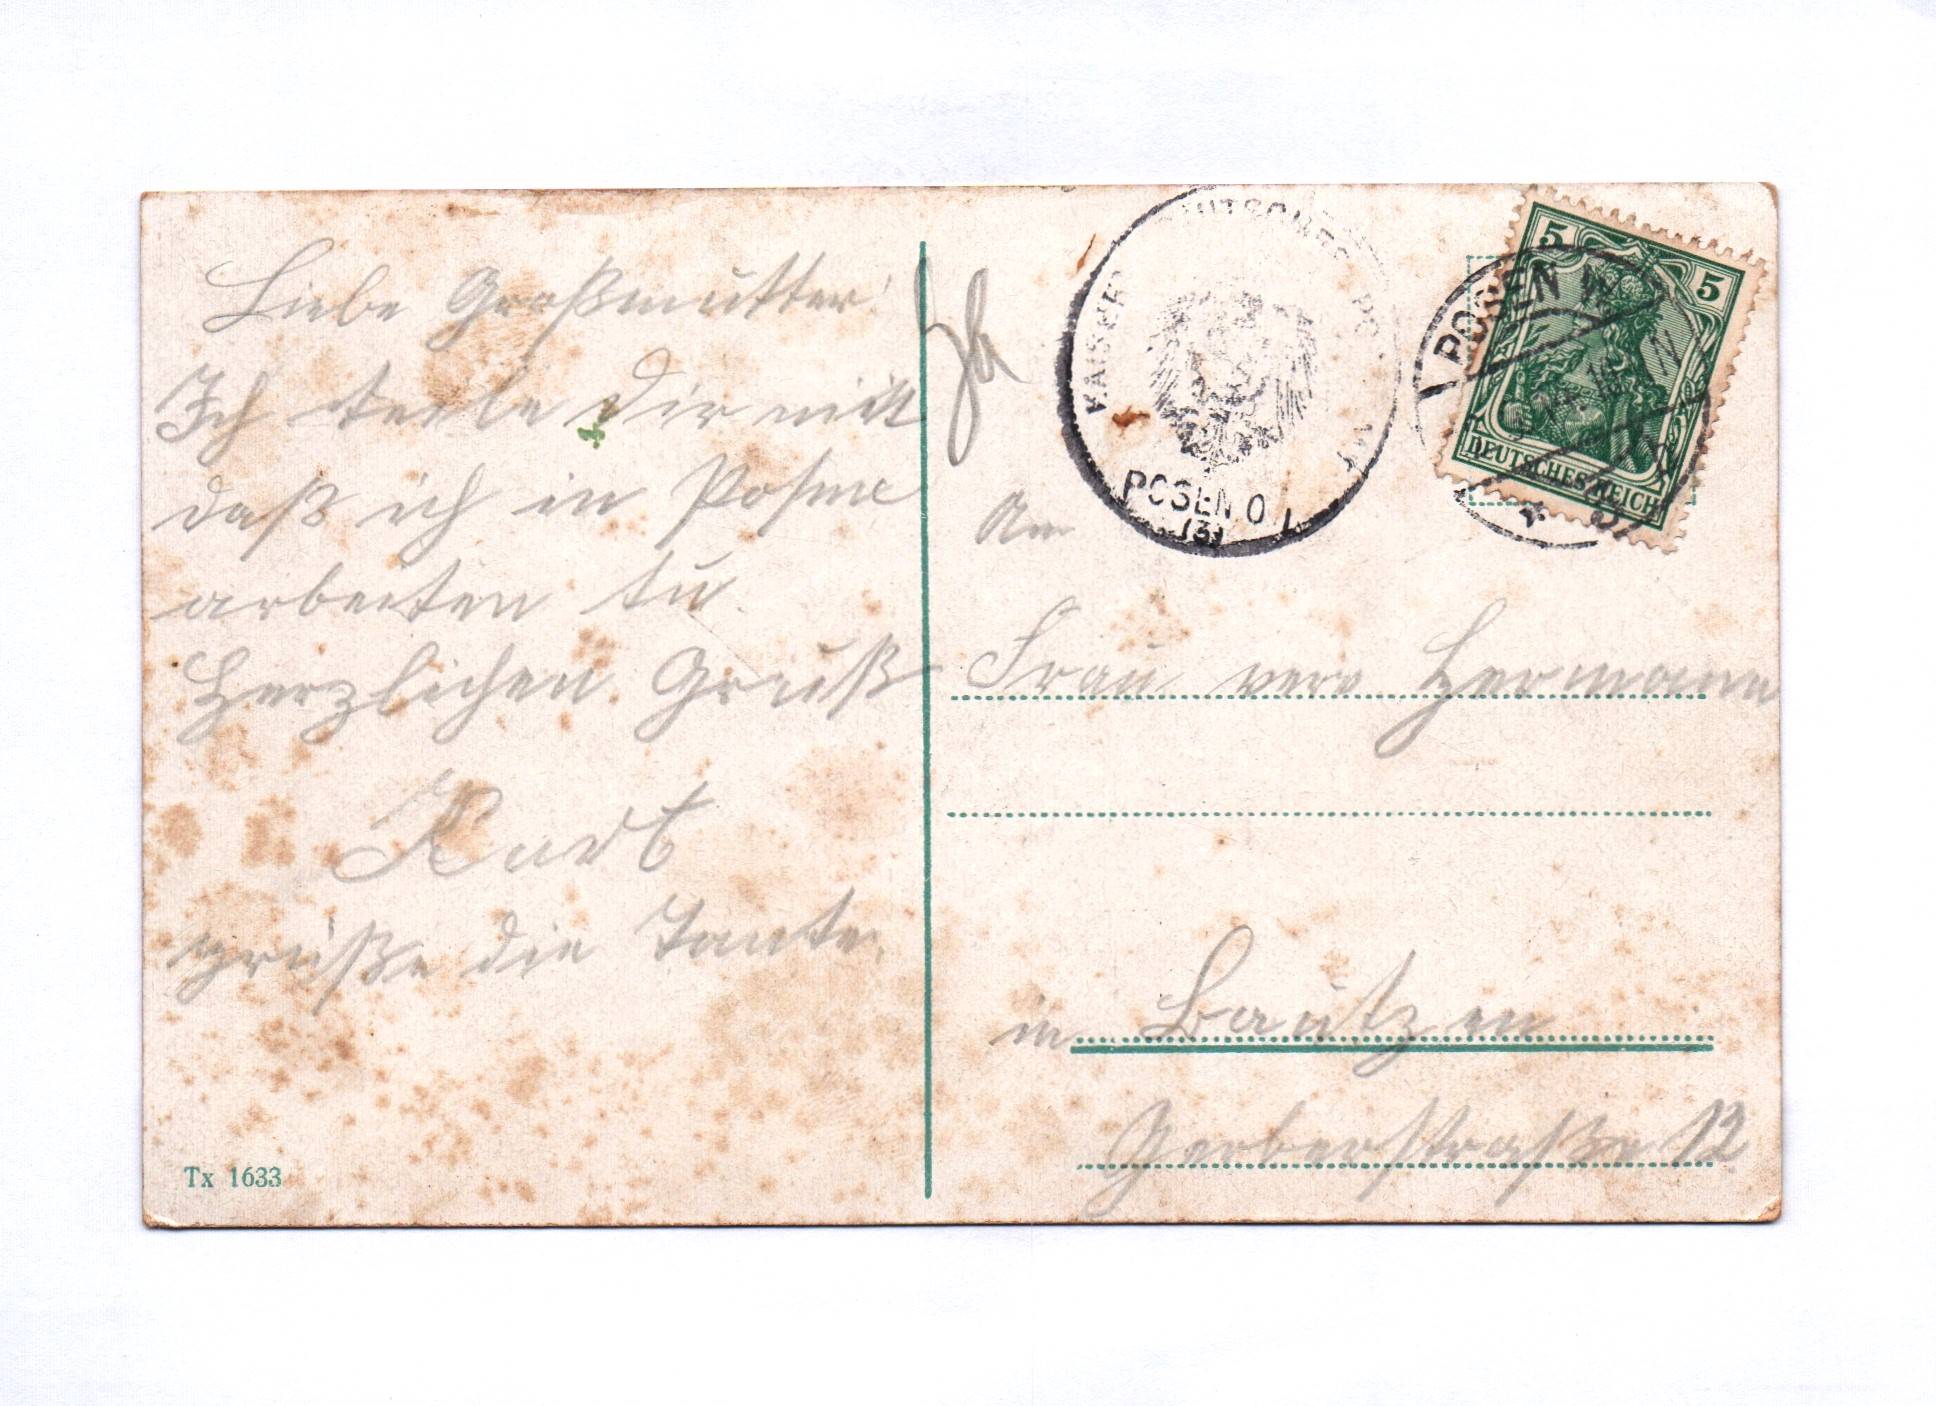 Liebe Großmutter!
Ich teile Dir mit
daß ich in Posen
arbeiten tu
Herzlichen Gruß
Kurt
grüße die Tante.
Tx 1633
POSEN O 1
(3)
5 5
POSEN W
DEUTSCHES REICH
An
Frau Hermann
in Bautzen
Gerberstraße 12